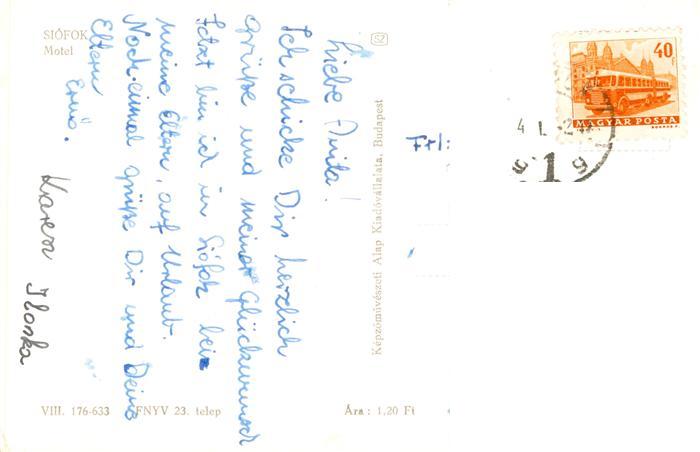 SIÓFOK
Motel
SZ
Liebe Anita!
Ich schicke Dir herzlich
Grüße und meine Glückwunsch
Jetzt bin ich in Siófok bei
meine Eltern, auf Urlaub.
Noch einmal grüße Dir und Deine
Eltern
Ernő.
Karen Iloska
VIII. 176-633 FNYV 23. telep Ára: 1,20 Ft
Képzőművészeti Alap Kiadóvállalata, Budapest
Frl:
40 F
MAGYAR POSTA
4 I. 2
9
1